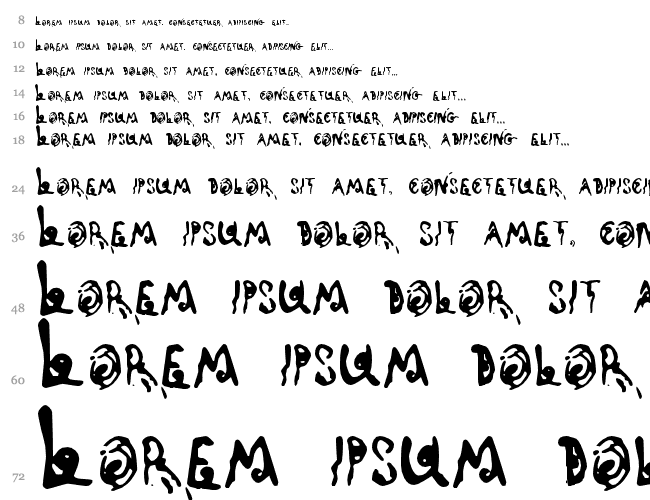 8 LOREM IPSUM DOLOR SIT AMET, CONSECTETUER ADIPISCING ELIT...
10 LOREM IPSUM DOLOR SIT AMET, CONSECTETUER ADIPISCING ELIT...
12 LOREM IPSUM DOLOR SIT AMET, CONSECTETUER ADIPISCING ELIT...
14 LOREM IPSUM DOLOR SIT AMET, CONSECTETUER ADIPISCING ELIT...
16 LOREM IPSUM DOLOR SIT AMET, CONSECTETUER ADIPISCING ELIT...
18 LOREM IPSUM DOLOR SIT AMET, CONSECTETUER ADIPISCING ELIT...
24 LOREM IPSUM DOLOR SIT AMET, CONSECTETUER ADIPISCI
36 LOREM IPSUM DOLOR SIT AMET, CON
48 LOREM IPSUM DOLOR SIT A
60 LOREM IPSUM DOLOR
72 LOREM IPSUM DOL